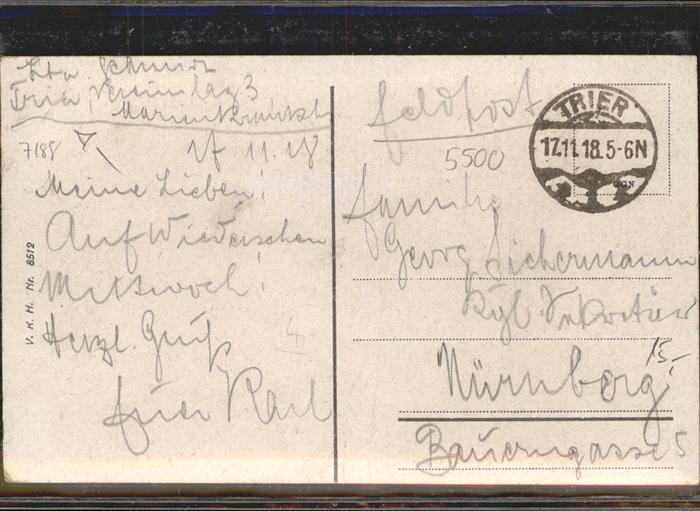 Ltn Schmidt
Trier, Vereinslaz 3
7188
17.11.18
Meine Lieben!
Auf Wiedersehen
Mittwoch!
Herzl. Gruß
Euer Karl
V. K. H. Nr. 8512
Feldpost
TRIER
17.11.18.5-6N
5500
Familie
Georg Sichermann
Kgl. Sekretär
15,-
Nürnberg
Bauerngasse 5